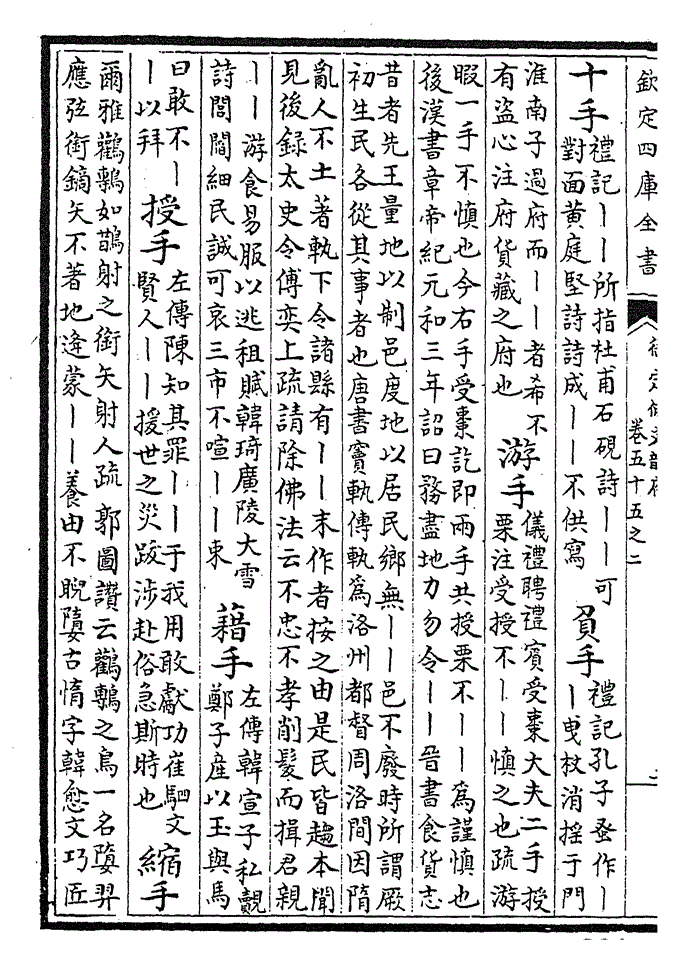 欽定四庫全書
卷五十五之二
十手
禮記丨丨所指杜甫石硯詩丨丨可
對面黄庭堅詩詩成丨丨不供寫
負手
禮記孔子蚤作丨
丨曳杖消揺于門
淮南子過府而丨丨者希不
有盗心注府貨藏之府也
游手
儀禮聘禮賓受棗大夫二手授
栗注受授不丨丨慎之也疏游
暇一手不慎也今右手受棗訖即兩手共授栗不丨丨為謹慎也
後漢書章帝紀元和三年詔曰務盡地力勿令丨丨晉書食貨志
昔者先王量地以制邑度地以居民鄉無丨丨邑不廢時所謂厥
初生民各從其事者也唐書竇軌傳軌為洛州都督周洛間因隋
亂人不土著軌下令諸縣有丨丨末作者按之由是民皆趨本聞
見後録太史令傅奕上疏請除佛法云不忠不孝削髮而揖君親
丨丨游食易服以逃租賦韓琦廣陵大雪
詩閭閻細民誠可哀三市不喧丨丨束
藉手
左傳韓宣子私覿
鄭子産以玉與馬
曰敢不丨
丨以拜
授手
左傳陳知其罪丨丨于我用敢獻功崔駰文
賢人丨丨援世之災跋涉赴俗急斯時也
縮手
爾雅鸛鷒如鵲射之銜矢射人疏 郭圖讚云鸛鷒之鳥一名嫷羿
應弦銜鏑矢不著地逄蒙丨丨養由不睨嫷古惰字韓愈文巧匠